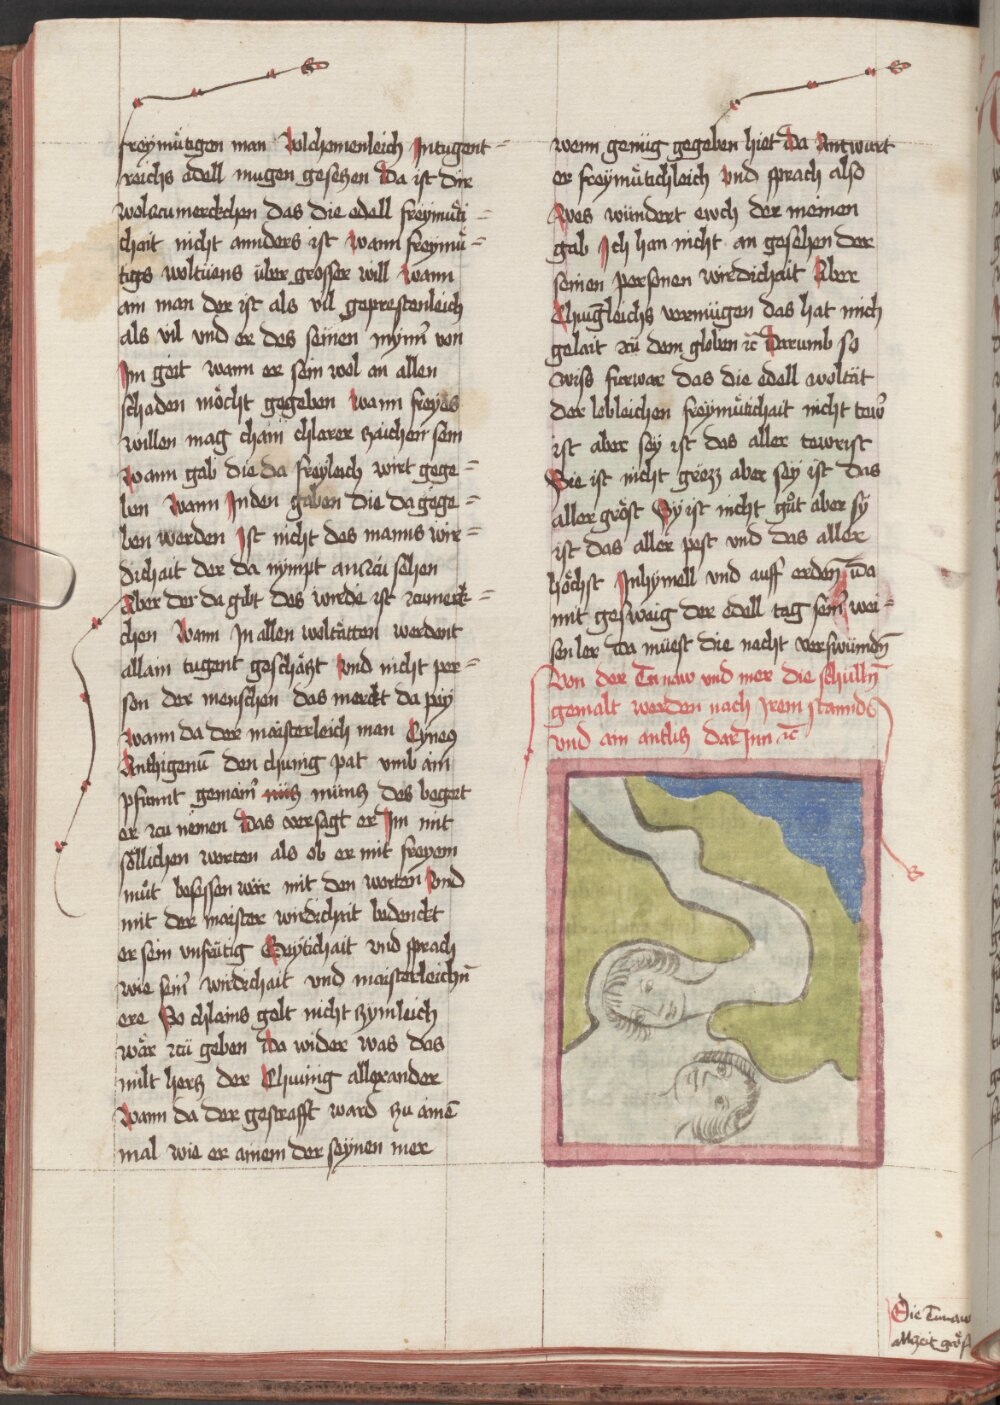 freymütigen man Volchomenleich Intugent-
reichs edell mugen gesehen Da ist dir
wolzcumerckchen das die edell freymüti-
chait nicht annders ist wann freymü-
tigs woltüens über grosser will wann
am man der ist als vil geprestenleich
als vil und er des seinen mynn̄ von
Im geit wann er sein wol an allen
schaden möcht gegeben wann freyes
willen mag chain chlarer zaichen sein
wann gab die da freyleich wirt gege-
ben wann In den gaben die da gege-
ben werden Ist nicht des manns wir-
dichait der da nympt anzcu sehen
Aber der da gibt des wirde ist zcumerk-
chen wann In allen woltätten werdent
allain tugent geschäczt vnd nicht per-
son der menschen das merckt da pey
wann da der maisterleich man Cyneus
Anthigenū den chunig pat vmb ain
pfunnt gemain̄ müns des begert
er zcu nemen das versagt er Im mit
söllichen worten als ob er mit freyem
müt besessen wär mit den worten vnd
mit der maister wirdichait bedenckt
er sein vnfrütig Geytichait vnd sprach
wie sein̄ wirdichait vnd maisterleichn̄
ere So chlains gelt nicht zymleich
wär zcü geben da wider was das
milt hercz der Chunig allexander
wann da der gestrafft ward zu aine̅
mal wie er ainem der seynen mer
wenn genüg gegeben hiet Da Antwurt
er freymütichleich vnd sprach also
Wes wündert ewch der meinen
gab Ich han nicht an gesehen der
seinen personen wirdichait Aber
Chüngleichs vermügen das hat mich
gelait zcü dem globen ꝛc̄ Darumb so
wiss furwar das die edell woltät
der lobleichen freymütichait nicht tewr
ist aber sey ist das aller tewrist
Sie ist nicht grözz aber sey ist das
aller gröst Sy ist nicht güt aber sy
ist das aller pest vnd das aller
höchst In hymell vnd auff erden wa
mit gesweig der edell tag sein̄ wei-
sen ler da müest die nacht verswündn̄
Von der Tunaw vnd mer die schülln̄
gemalt werden nach Irem stannde
vnd ain antlicz dar Inn ꝛc̄
Die Tunaw
allczeit grös